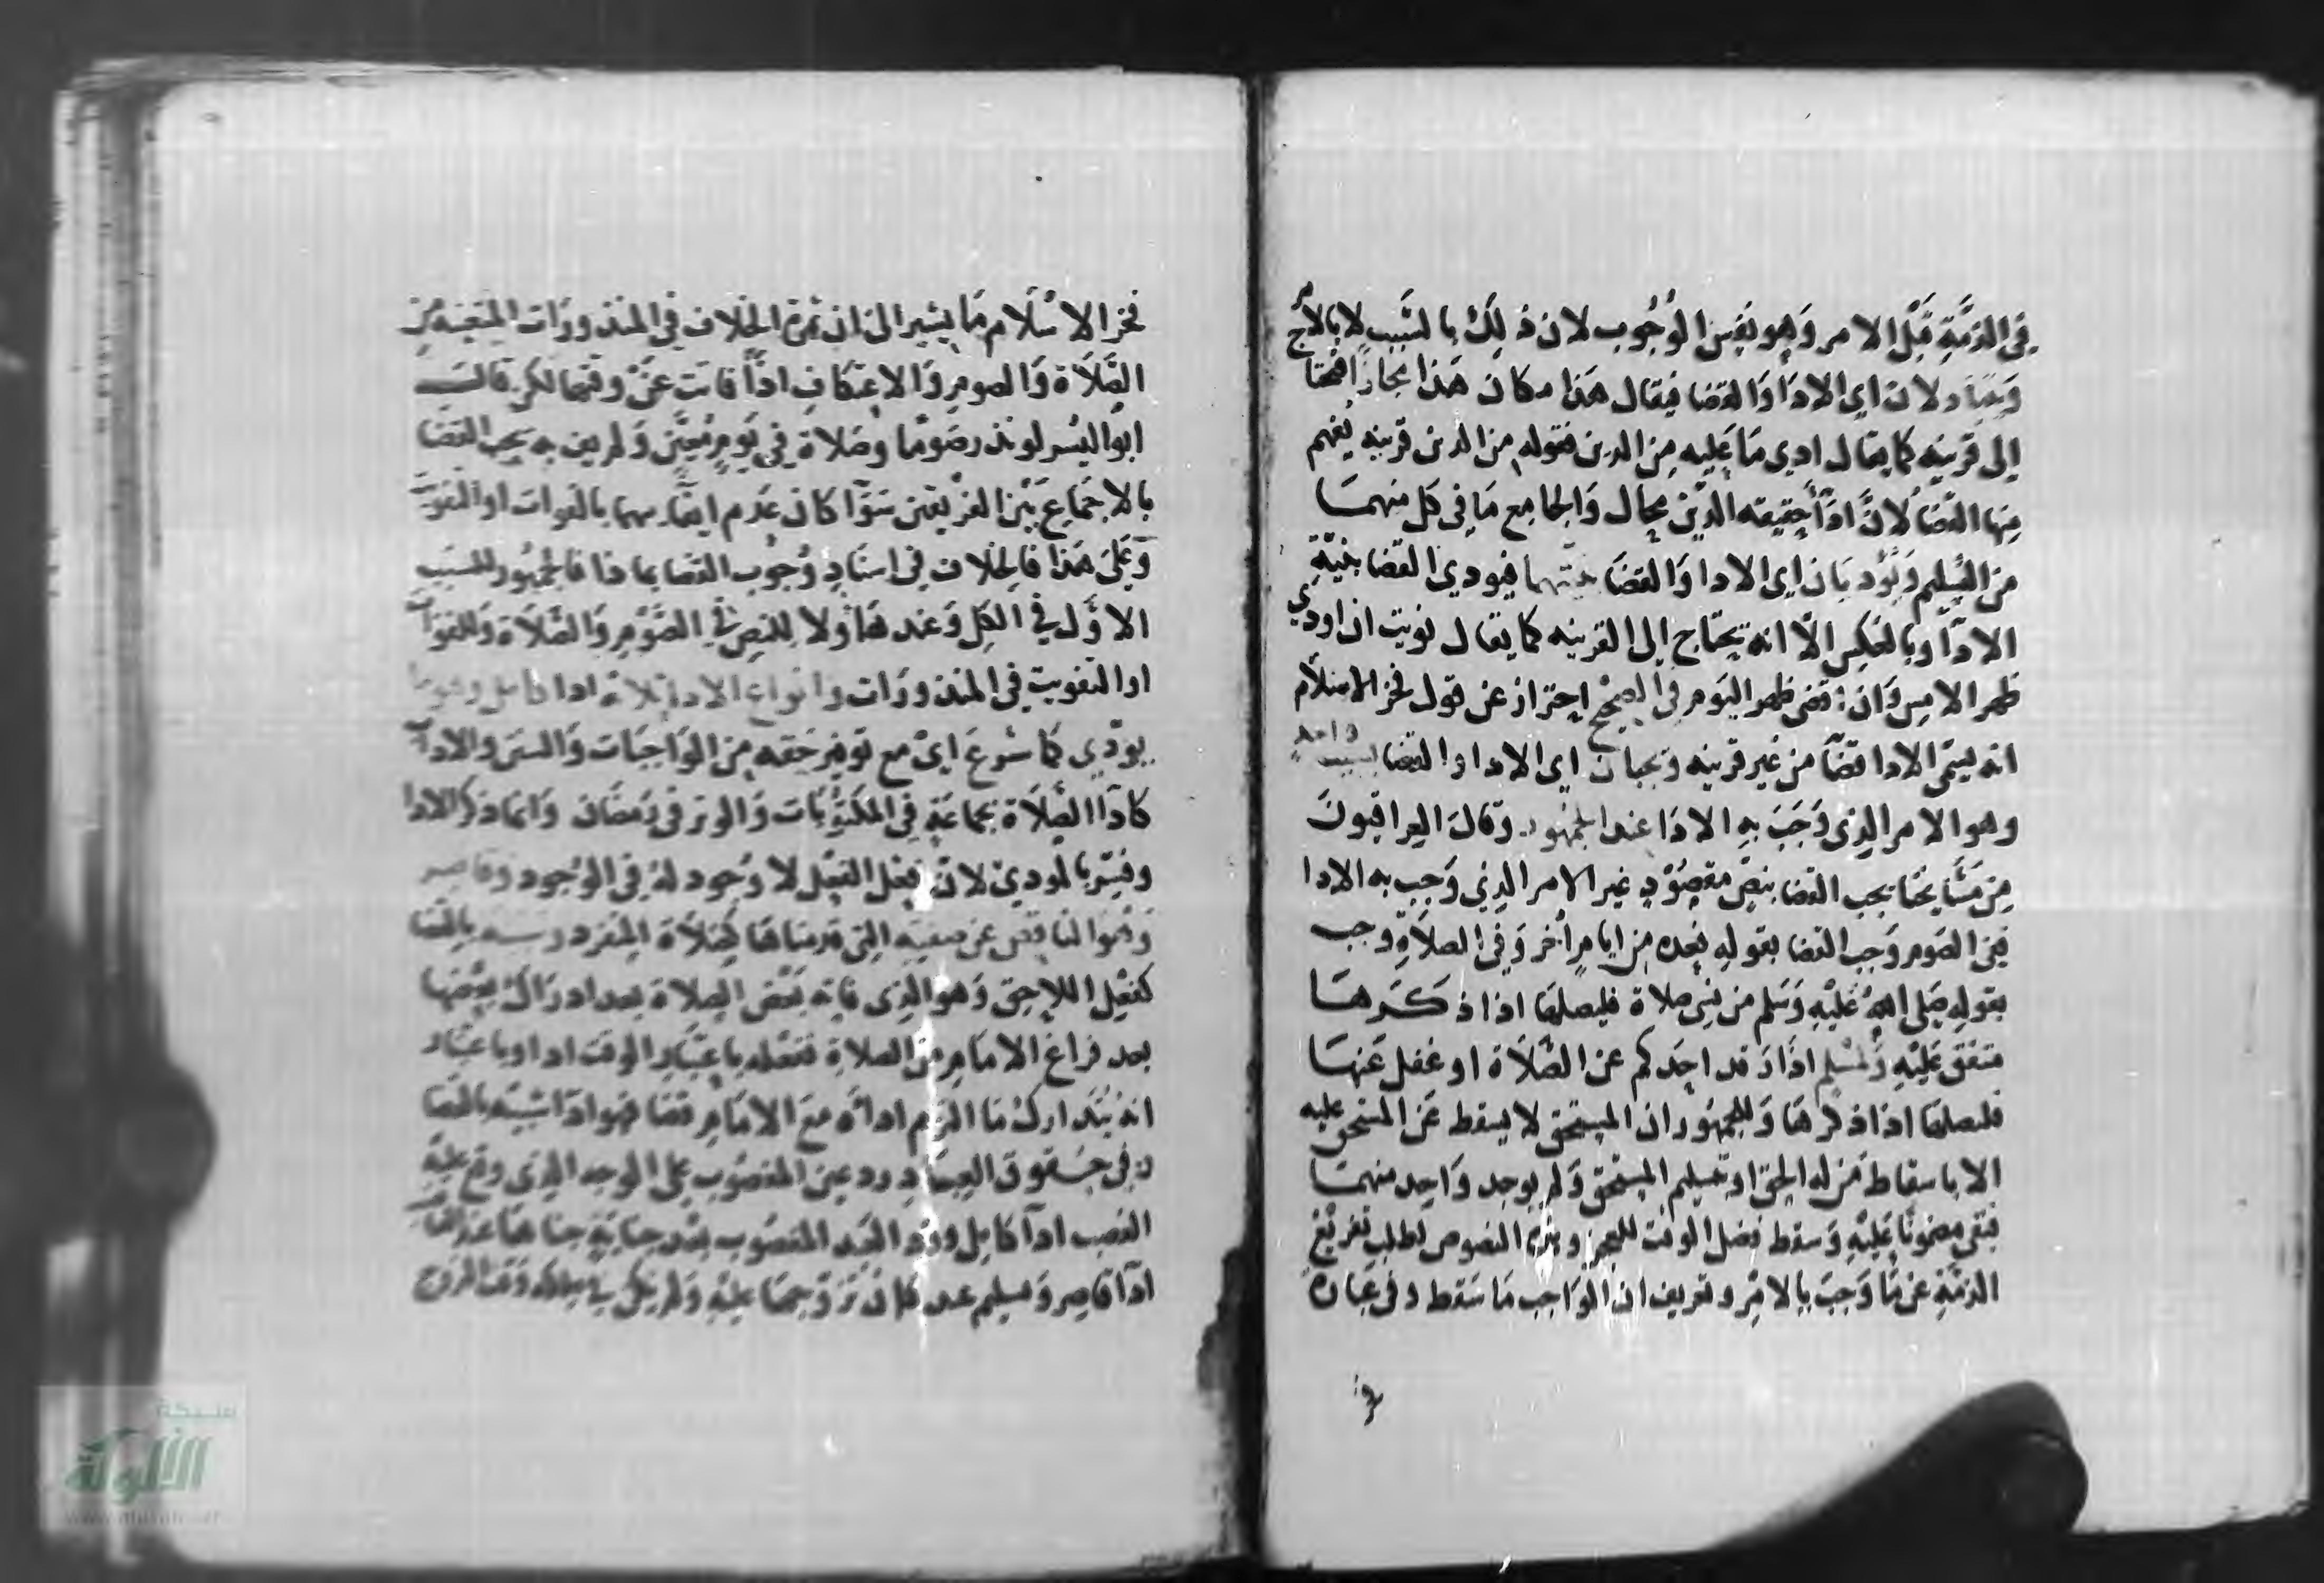 في الذمة قبل الامر وهو نفس الوجوب لان ذلك بالسبب لا بالامر
ويتبادلان اي الادا والقضا فيقال هذا مكان هذا مجازا
الى قرينه كما يقال ادى ما عليه من الدين فقوله من الدين قرينه يفهم
منها القضا لان ادآ حقيقه الدين محال والجامع ما في كل منهما
من التسليم ويؤديان اي الادا والقضا فيودى القضا بنية
الادآ وبالعكس الا انه يحتاج الى القرينه كما يقال نويت ان اودي
ظهر الامس وان قضى ظهر اليوم في الصحيح احتراز عن قول فخر الاسلام
انه يسمى الادا قضآ من غير قرينه ويجبان اي الادا والقضا بسبب واحد
وهو الامر الذي وجب به الادا عند الجمهور وقال العراقيون
من مشايخنا يجب القضا بنص مقصود غير الامر الذي وجب به الادا
ففي الصوم وجب القضا بقوله فعده من ايام اخر وفي الصلاة وجب
بقوله صلى الله عليه وسلم من نسى صلاة فليصلها اذا ذكرها
متفق عليه ولمسلم اذا رقد احدكم عن الصلاة او غفل عنها
فليصلها اذا ذكرها وللجمهور ان المستحق لا يسقط عن المستحق عليه
الا باسقاط من له الحق او تسليم المستحق ولم يوجد واحد منهما
فبقي مضمونا عليه وسقط فضل الوقت للعجز وهذه النصوص لطلب تفريغ
الذمة عن ما وجب بالامر وتعريف ان الواجب ما سقط وفي عبارة
فخر
فخر الاسلام ما يشير الى ان ثمرة الخلاف في المنذورات المتعينه من
الصلاة والصوم والاعتكاف اذا فاتت عن وقتها لكن قال
ابو اليسر لو نذر صوما وصلاة في يوم معين ولم يف به يجب القضا
بالاجماع بين الفريقين سوآ كان عدم ايفايه بالفوات او التفويت
وعلى هذا فالخلاف في اسناد وجوب القضا بماذا فالجمهور للسبب
الاول في الكل وعند هاولا للنص في الصوم والصلاة وللفوات
او التفويت في المنذورات وانواع الادا ثلاثة ادا كامل وهو ما
يودي كما شرع اي مع توفير حقه من الواجبات والسنن والاداب
كادآ الصلاة بجماعة في المكتوبات والوتر في رمضان وانما ذكر الادا
وفسر بالمودي لان فعل الفعل لا وجود له في الوجود وقاصر
وهو الناقص عن صفته التي قدمناها كصلاة المنفرد بالقضا
كفعل اللاحق وهو الذى فاته بعض الصلاة بعد ادراك بعضها
بعد فراغ الامام من الصلاة ففعله باعتبار الوقت ادا وباعتبار
انه يتدارك ما التزم اداه مع الامام قضا فهو ادا شبيه بالقضا
وفي حقوق العباد رد عين المغصوب على الوجه الذي وقع عليه
الغصب ادآ كامل ورد العبد المغصوب بعد جناية جناها عند الغاصب
ادآ قاصر وتسليم عبد كان تزوجها عليه ولم يكن في ملكه وقت التزوج